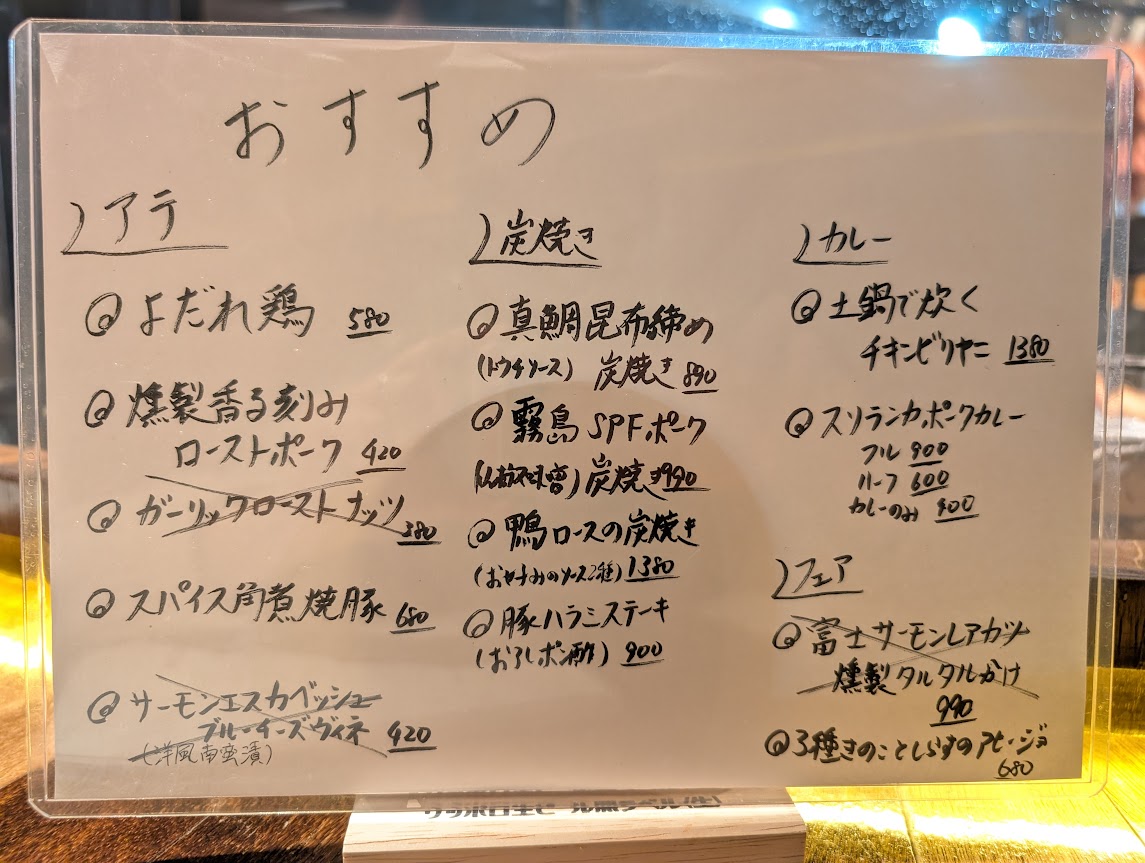 おすすめ
アテ
よだれ鶏 580
燻製香る刻み
ローストポーク 420
ガーリックローストナッツ
380
スパイス角煮焼豚 680
サーモンエスカベッシュ
ブルーチーズヴィネ 420
(洋風南蛮漬)
炭焼き
真鯛昆布締め
(トウチソース) 炭焼き 890
霧島SPFポーク
(仙台味噌) 炭焼き 990
鴨ロースの炭焼き
(お好みのソース2種) 1380
豚ハラミステーキ
(おろしポン酢) 900
カレー
土鍋で炊く
チキンビリヤニ 1380
スリランカポークカレー
フル 900
ハーフ 600
カレーのみ 400
フェア
富士サーモンレアカツ
燻製タルタルかけ
990
3種きのことしらすのアヒージョ
680
サッポロ生ビール黒ラベル(生)